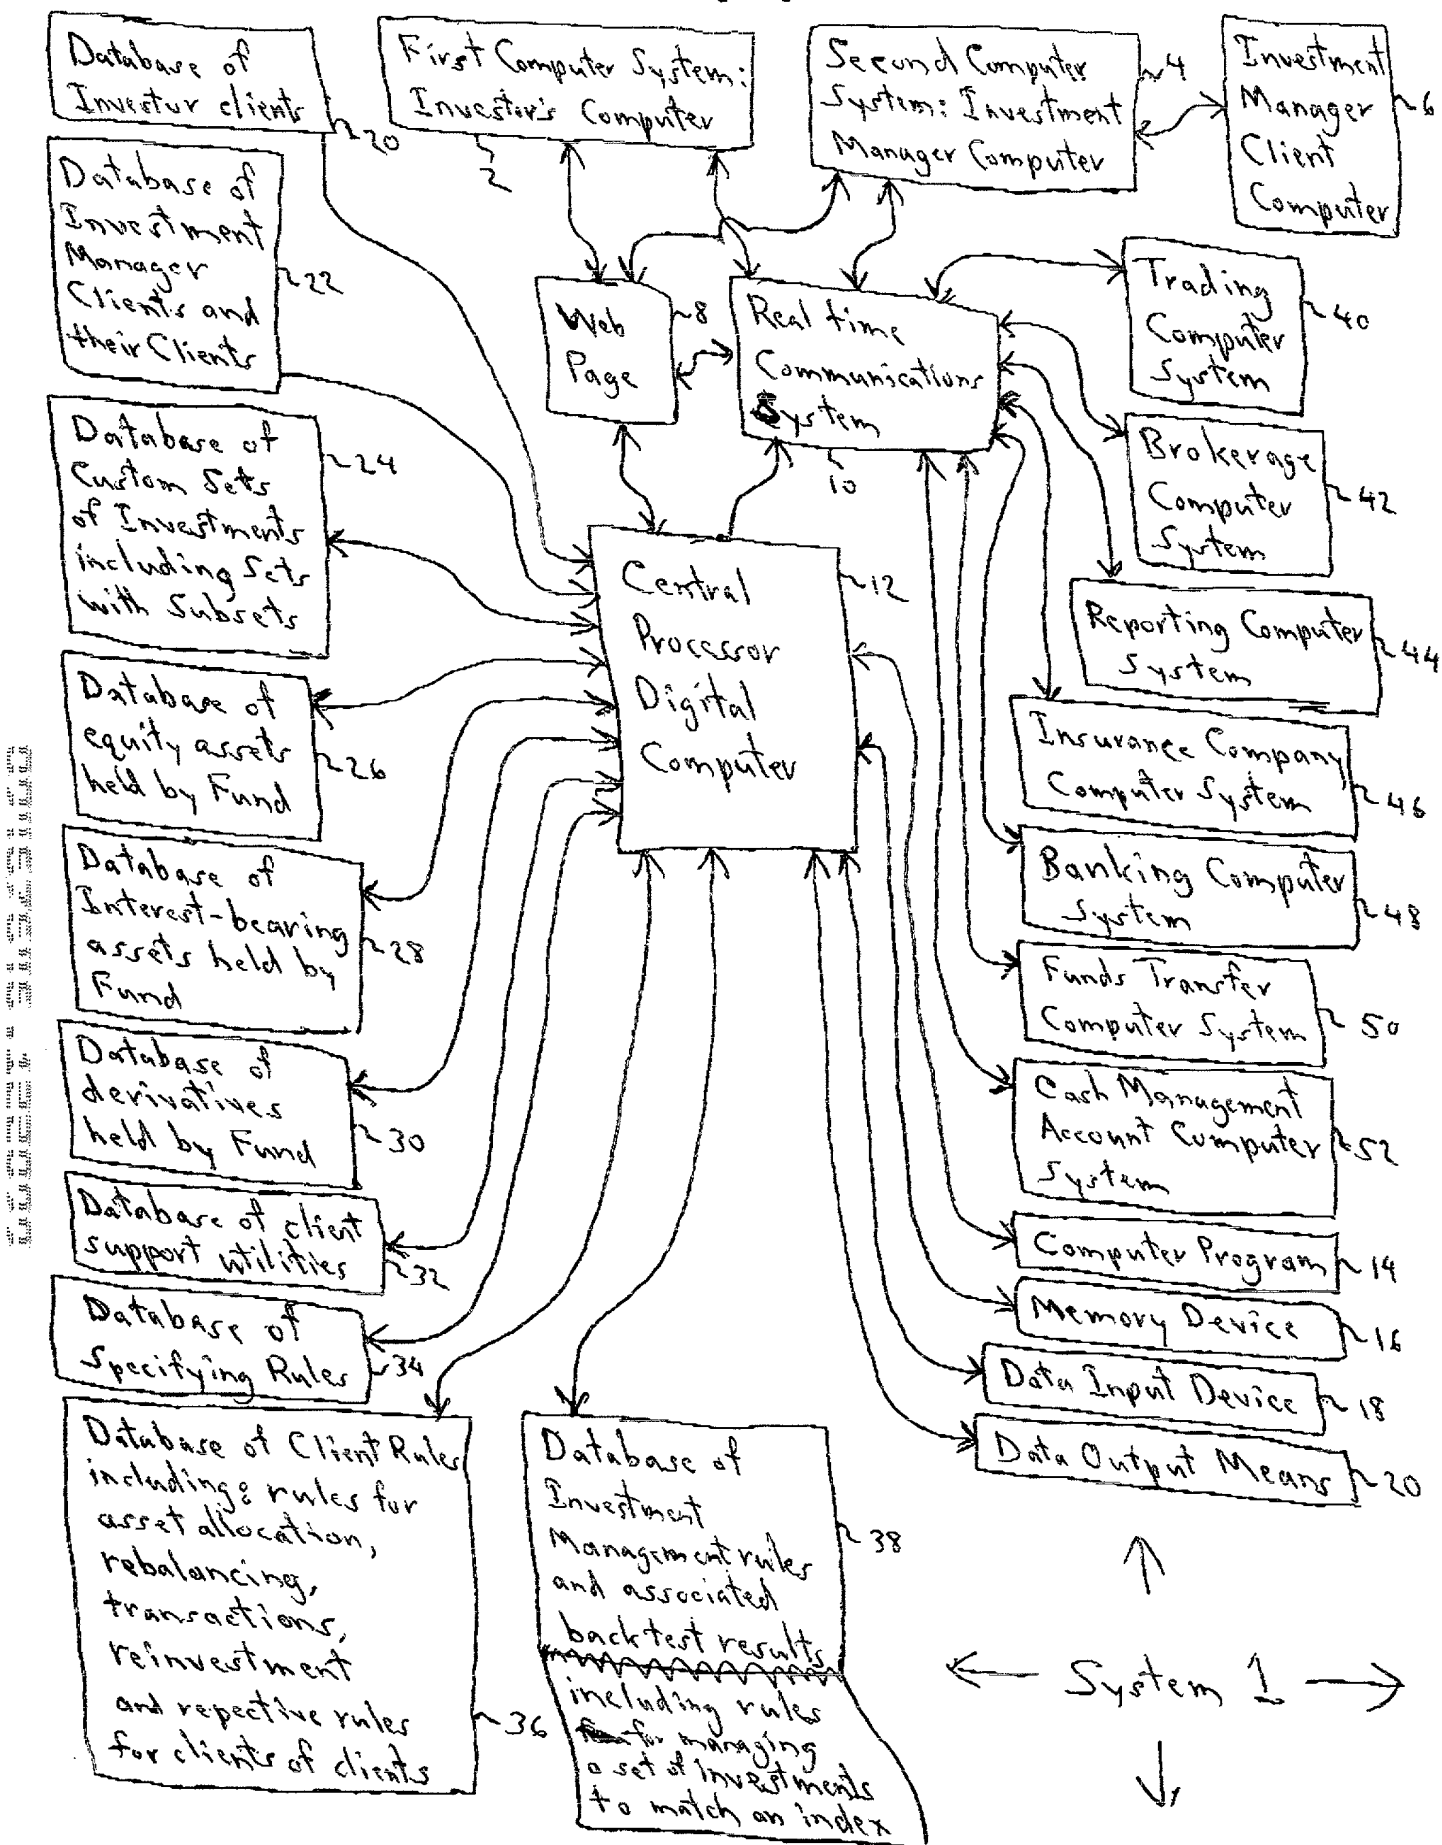 Database of
Investor clients
20
First Computer System:
Investor's Computer
2
Second Computer
System: Investment
Manager Computer
4
Investment
Manager
Client
Computer
6
Database of
Investment
Manager
Clients and
their Clients
22
Web
Page
8
Real time
Communications
System
10
Trading
Computer
System
40
Database of
Custom Sets
of Investments
including Sets
with Subsets
24
Brokerage
Computer
System
42
Central
Processor
Digital
Computer
12
Reporting Computer
System
44
Database of
equity assets
held by Fund
26
Insurance Company
Computer System
46
Database of
Interest-bearing
assets held by
Fund
28
Banking Computer
System
48
Funds Transfer
Computer System
50
Database of
derivatives
held by Fund
30
Cash Management
Account Computer
System
52
Database of client
support utilities
32
Computer Program
14
Database of
Specifying Rules
34
Memory Device
16
Data Input Device
18
Data Output Means
20
Database of Client Rules
including: rules for
asset allocation,
rebalancing,
transactions,
reinvestment
and repective rules
for clients of clients
36
Database of
Investment
Management rules
and associated
backtest results
including rules
for managing
a set of investments
to match an index
38
System 1